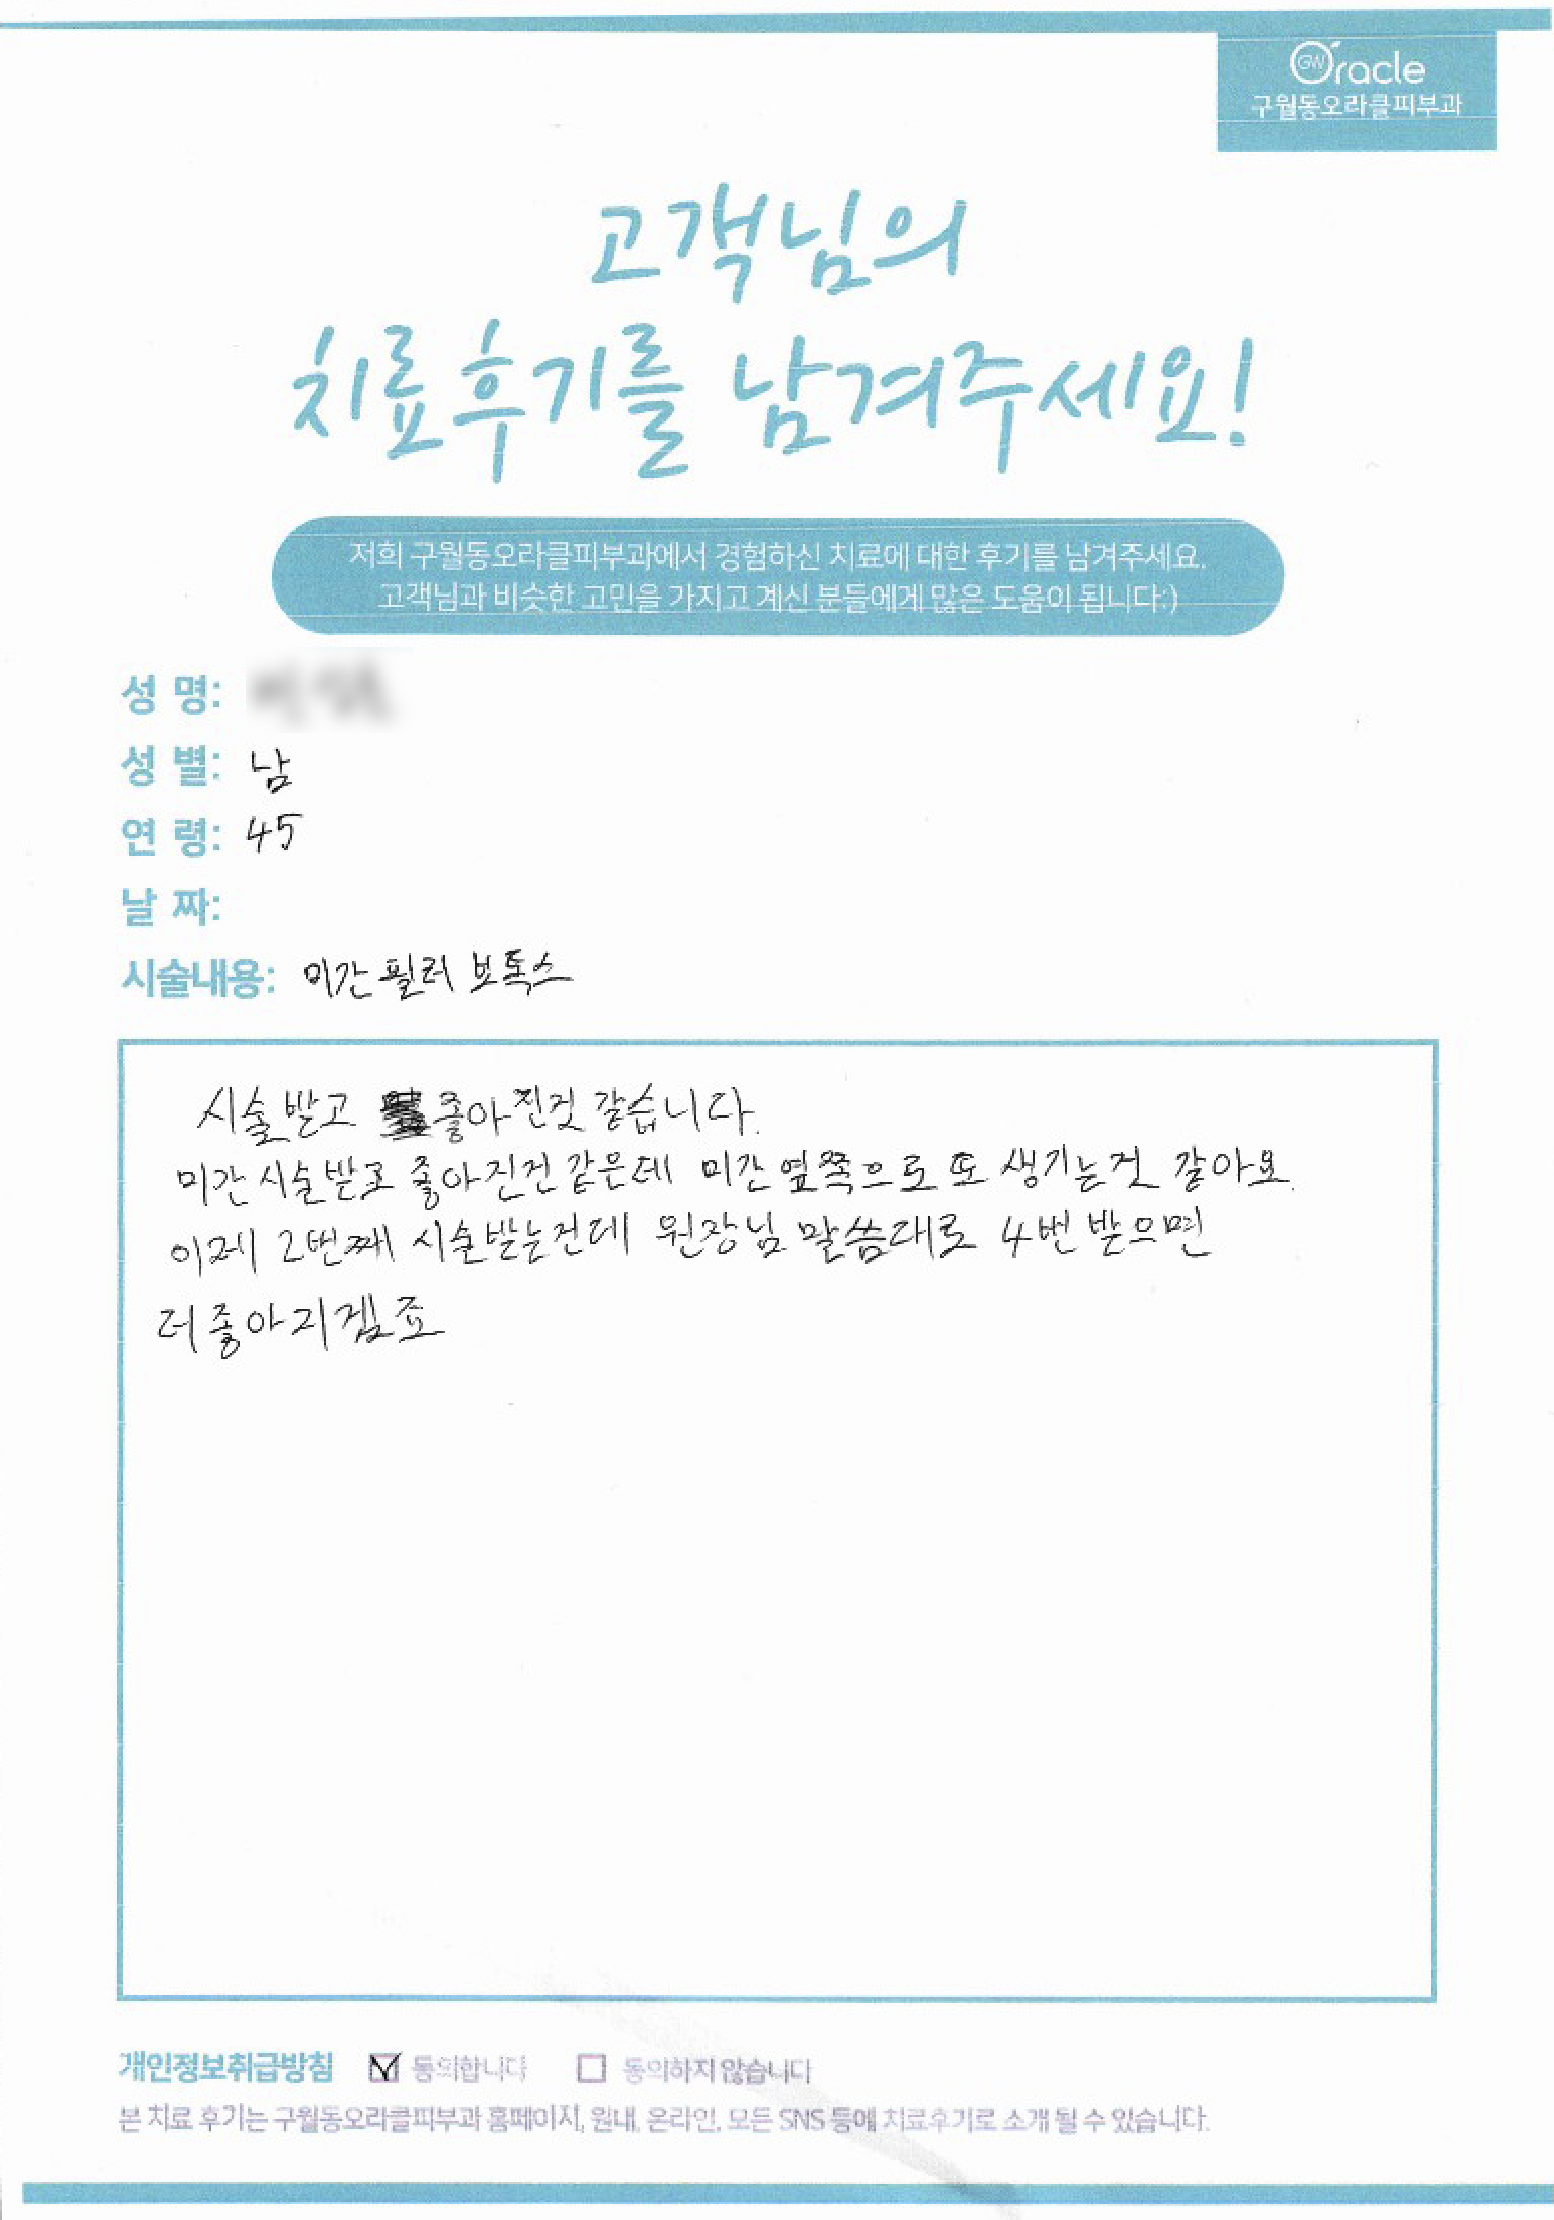 GW Oracle
구월동오라클피부과
고객님의
치료후기를 남겨주세요!
저희 구월동오라클피부과에서 경험하신 치료에 대한 후기를 남겨주세요.
고객님과 비슷한 고민을 가지고 계신 분들에게 많은 도움이 됩니다:)
성 명:
성 별: 남
연 령: 45
날 짜:
시술내용: 미간 필러 보톡스
시술받고 좋아진것 같습니다.
미간 시술받고 좋아진건 같은데 미간 옆쪽으로 또 생기는것 같아요.
이제 2번째 시술받는건데 원장님 말씀대로 4번 받으면
더 좋아지겠죠
개인정보취급방침 동의합니다 동의하지 않습니다
본 치료 후기는 구월동오라클피부과 홈페이지, 원내, 온라인, 모든 SNS 등에 치료후기로 소개 될 수 있습니다.